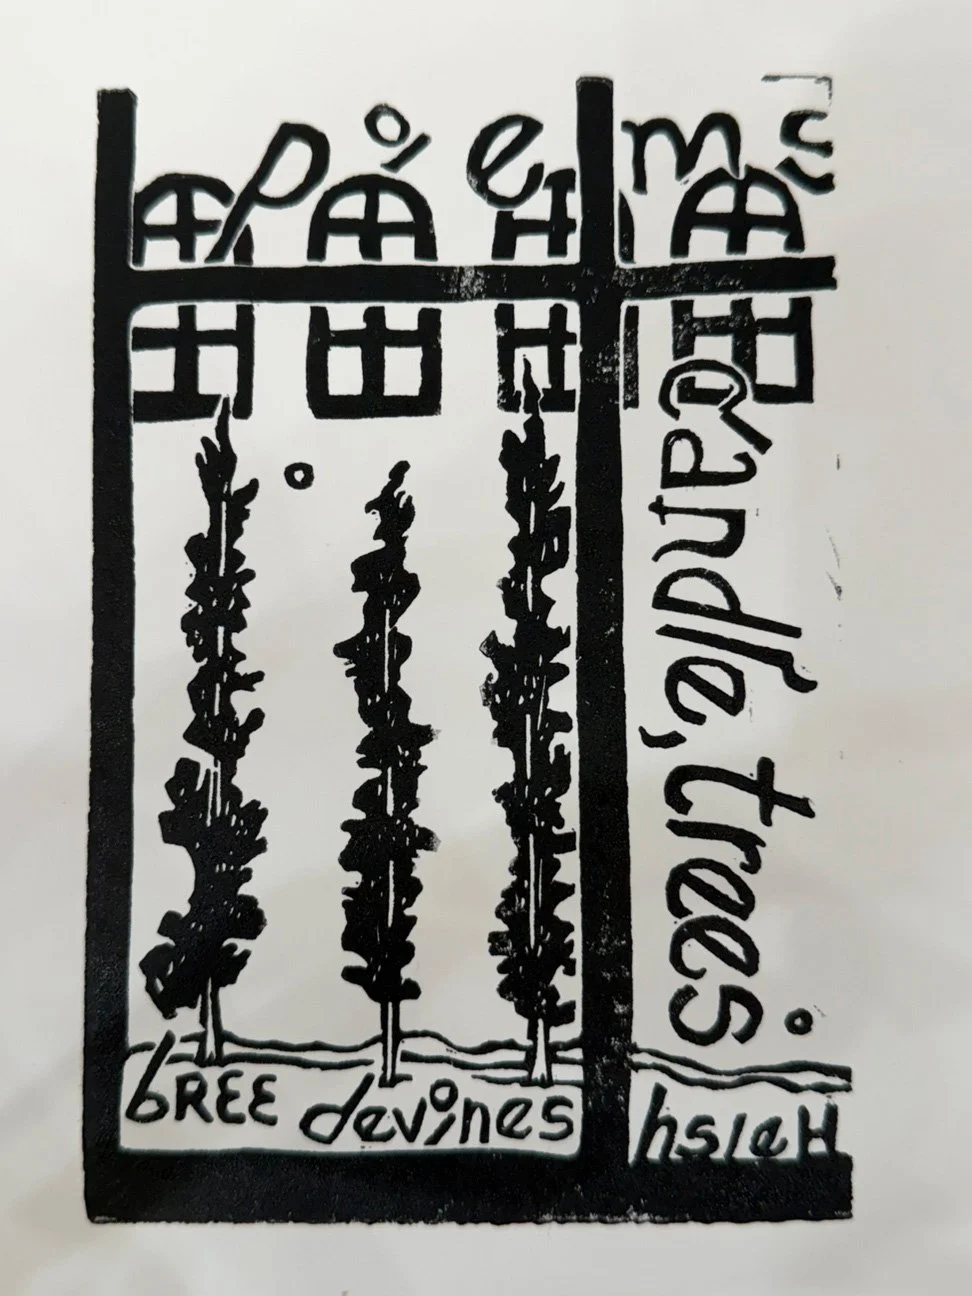 poems
candle, trees
bREE devines hsieH